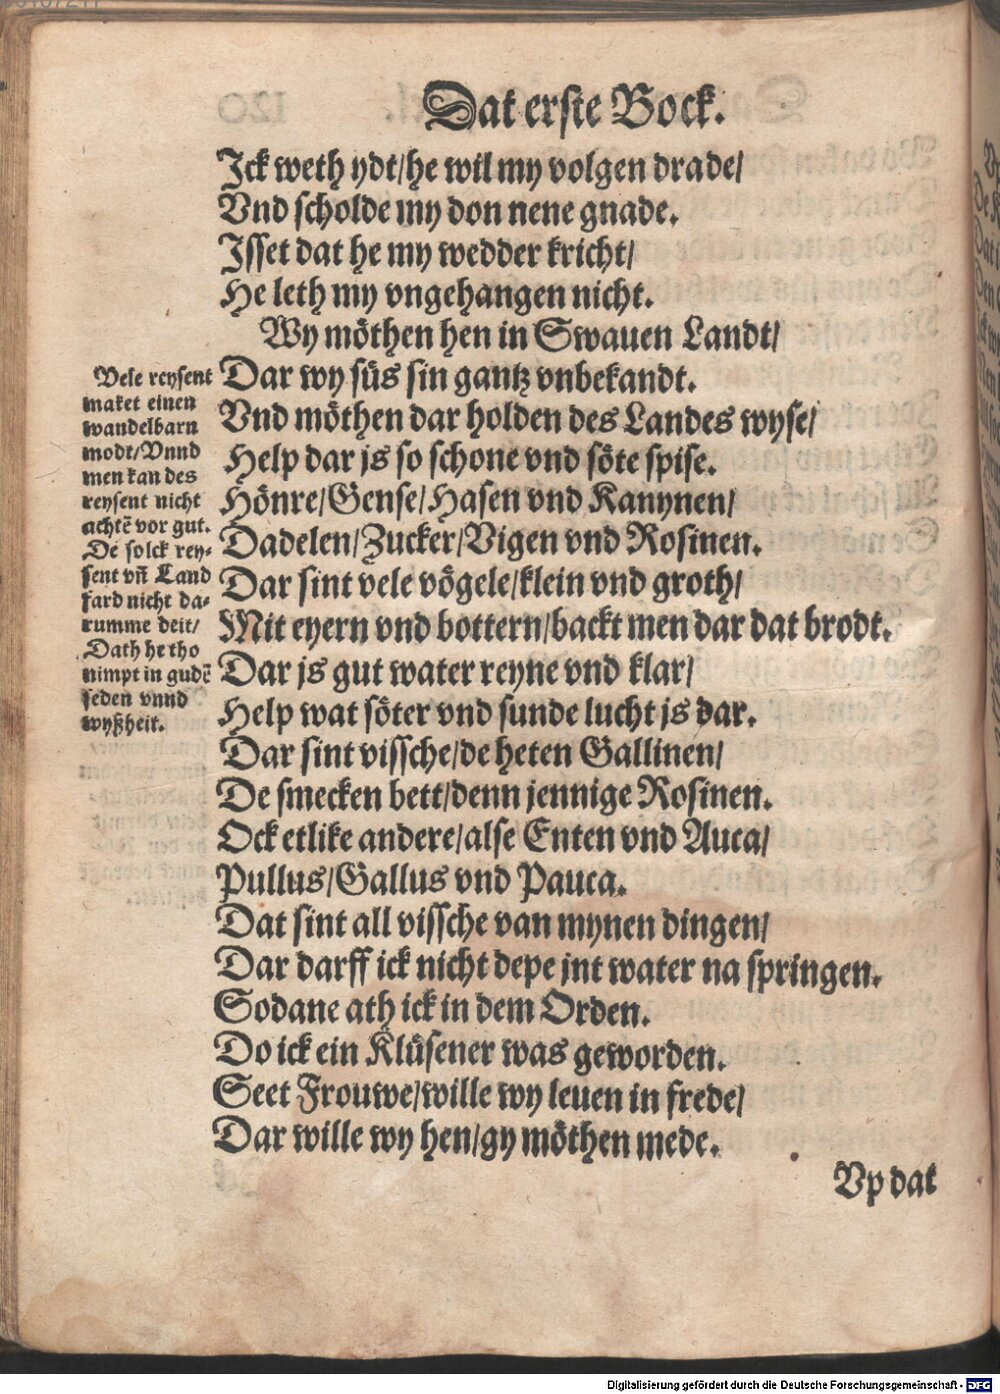 Dat erste Bock.
Jck weth ydt/he wil my volgen drade/
Vnd scholde my don nene gnade.
Jsset dat he my wedder kricht/
He leth my vngehangen nicht.
Wy möthen hen in Swauen Landt/
Dar wy süs sin gantz vnbekandt.
Vnd möthen dar holden des Landes wyse/
Help dar js so schone vnd söte spise.
Hönre/Gense/Hasen vnd Kanynen/
Dadelen/Zucker/Vigen vnd Rosinen.
Dar sint vele vögele/klein vnd groth/
Mit eyern vnd bottern/backt men dar dat brodt.
Dar js gut water reyne vnd klar/
Help wat söter vnd sunde lucht js dar.
Dar sint vissche/de heten Gallinen/
De smecken bett/denn jennige Rosinen.
Ock etlike andere/alse Enten vnd Auca/
Pullus/Gallus vnd Pauca.
Dat sint all vissche van mynen dingen/
Dar darff ick nicht depe jnt water na springen.
Sodane ath ick in dem Orden.
Do ick ein Klüsener was geworden.
Seet Frouwe/wille wy leuen in frede/
Dar wille wy hen/gy möthen mede.
Vp dat
Vele reysent
maket einen
wandelbarn
modt/Vnnd
men kan des
reysent nicht
achtē vor gut.
De solck rey-
sent vn̄ Land
fard nicht da-
rumme deit/
Dath he tho
nimpt in gudē
seden vnnd
wyßheit.
Digitalisierung gefördert durch die Deutsche Forschungsgemeinschaft - DFG